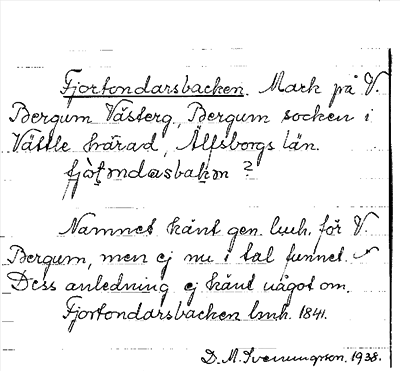 Fjortondarsbacken. Mark på V.
Bergum Västerg., Bergum socken i
Vättle härad, Älfsborgs län.
Namnet känt gen. lmh. för V.
Bergum, men ej nu i tal funnet.
Dess anledning ej känt något om.
Fjortondarsbacken lmh. 1841.
D. M. 1938.